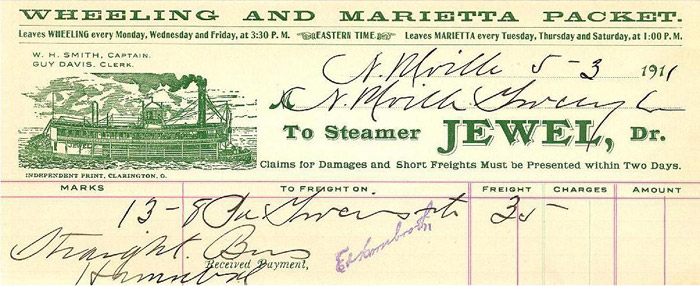 WHEELING AND MARIETTA PACKET.
Leaves WHEELING every Monday, Wednesday and Friday, at 3:30 P. M. EASTERN TIME Leaves MARIETTA every Tuesday, Thursday and Saturday, at 1:00 P. M.
W. H. SMITH, CAPTAIN.
GUY DAVIS, CLERK.
5-3 1911
M
To Steamer JEWEL, Dr.
Claims for Damages and Short Freights Must be Presented within Two Days.
INDEPENDENT PRINT, CLARINGTON, O.
MARKS TO FREIGHT ON. FREIGHT CHARGES AMOUNT
13-8 35
Straight Bros
Hannibal Received Payment,